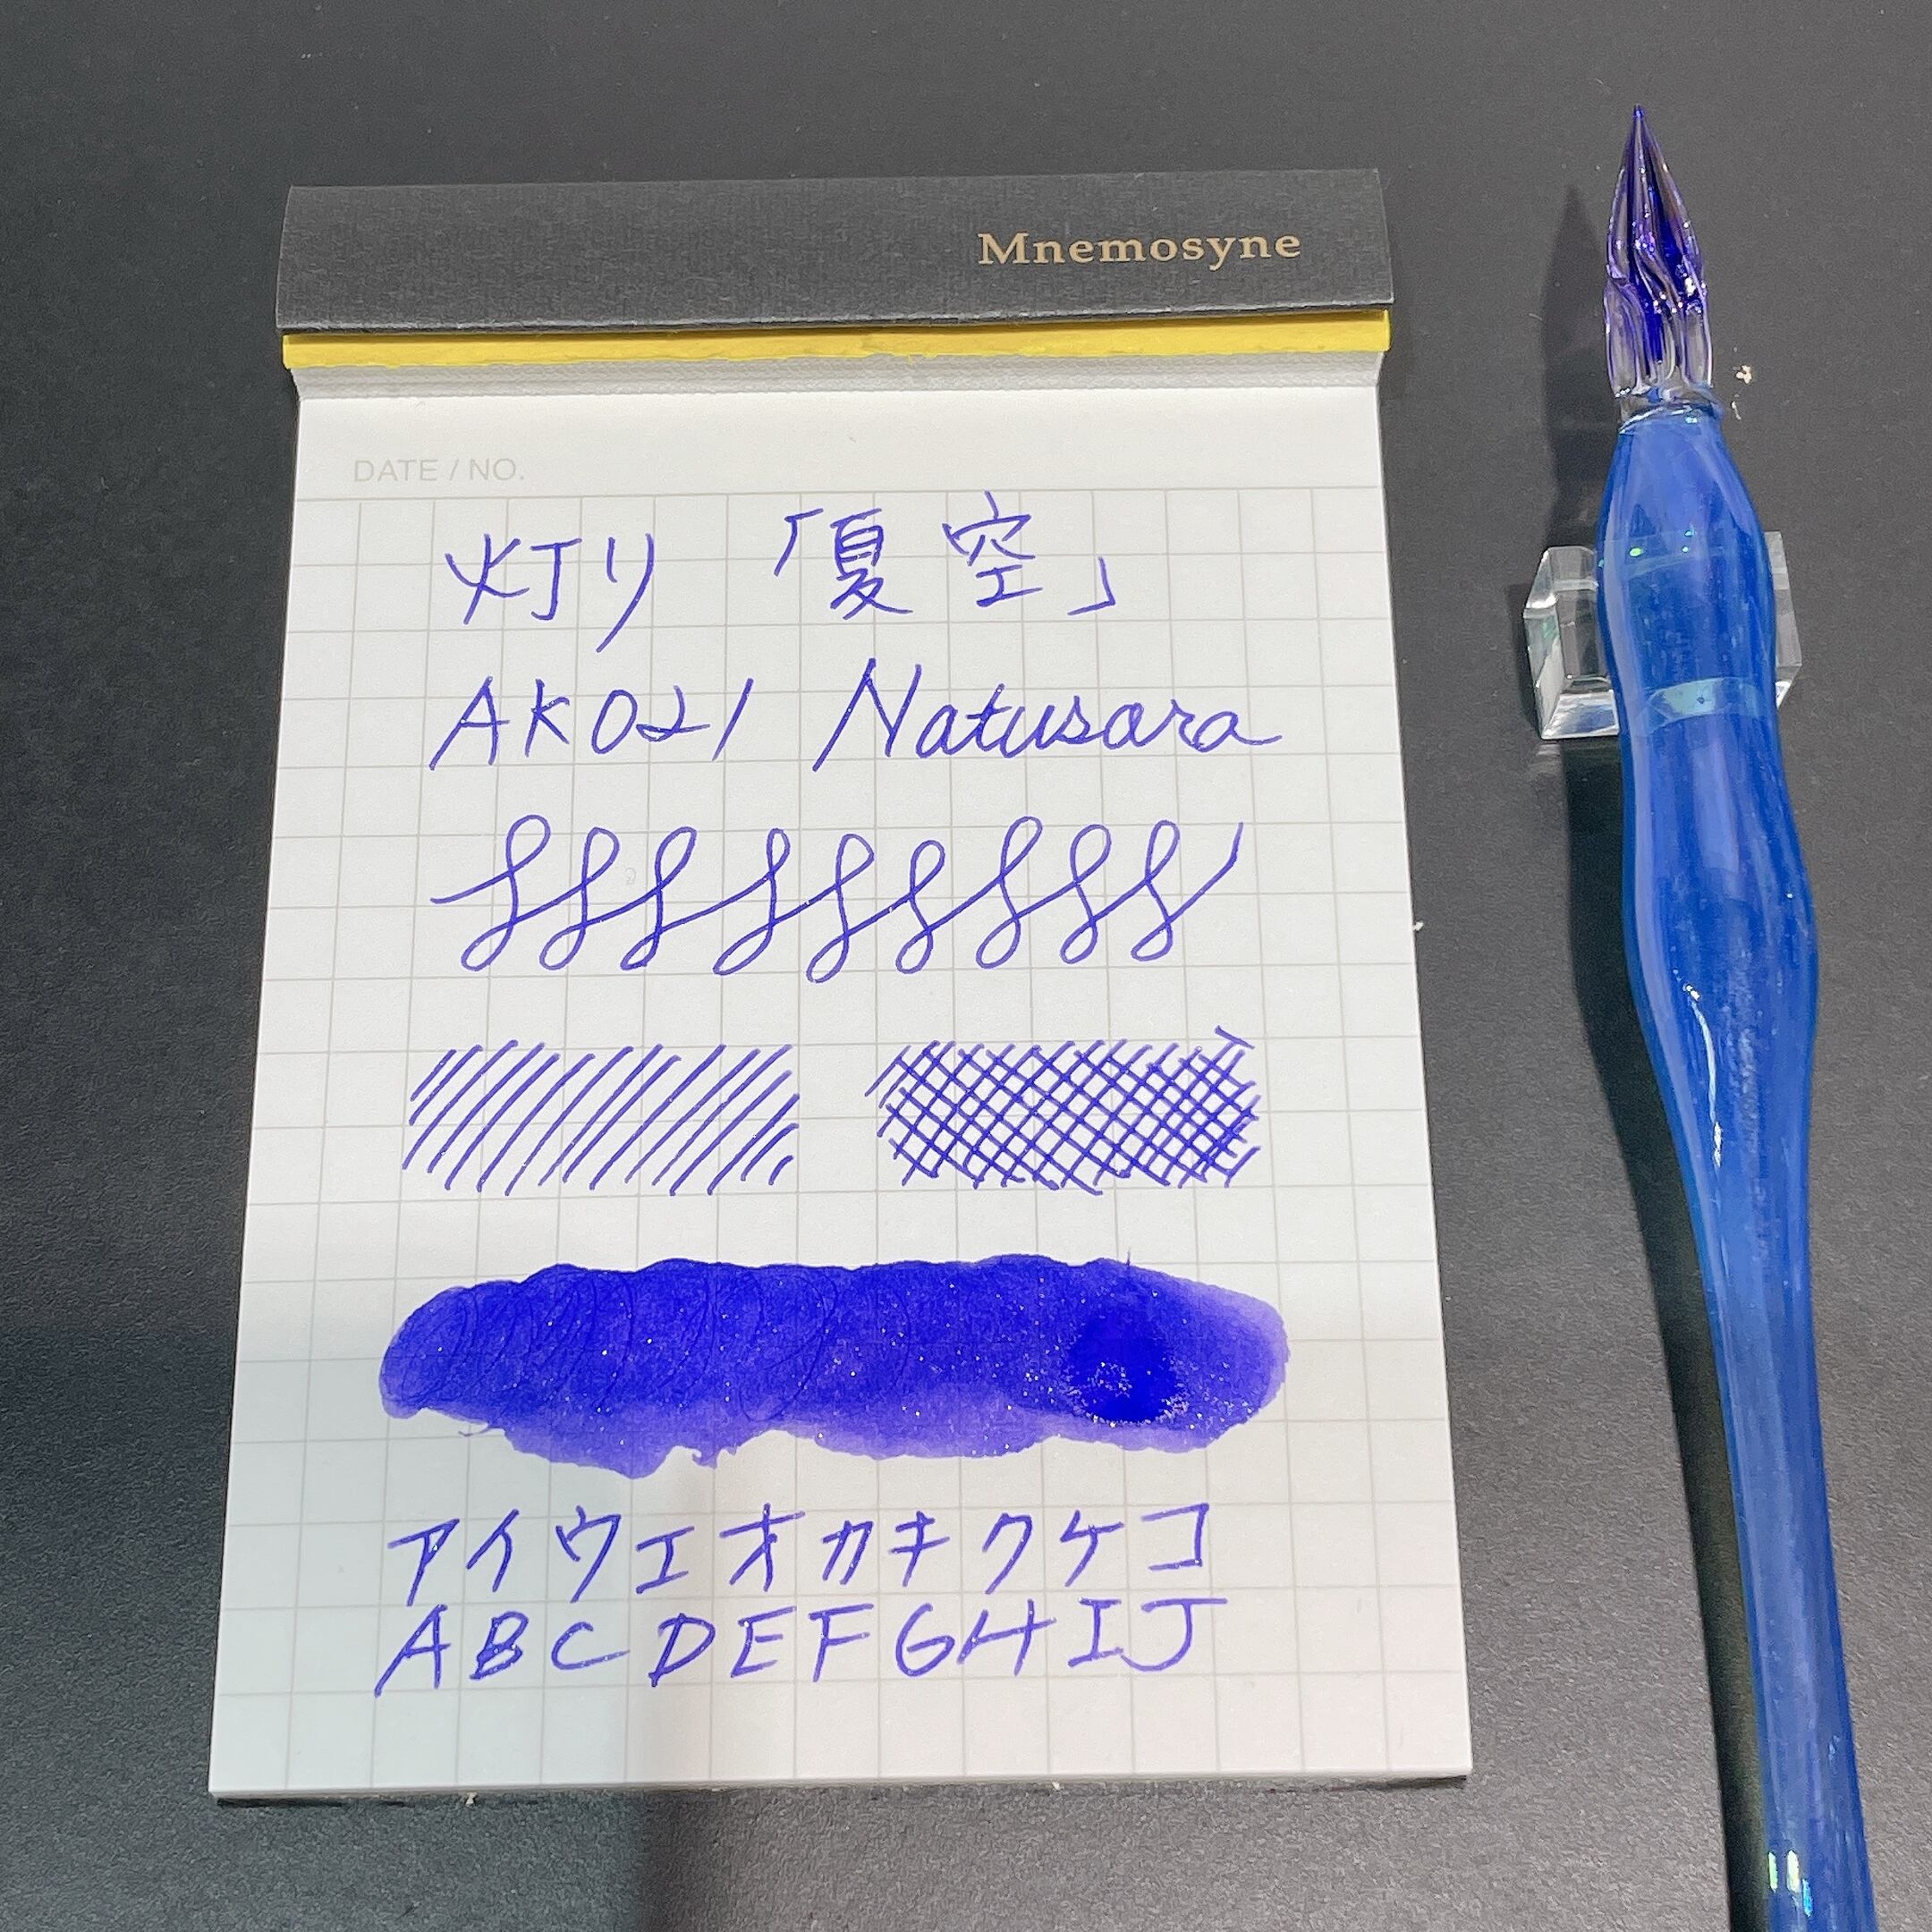 Mnemosyne
DATE / NO.
灯り 「夏空」
AK021 Natusora
アイウエオカキクケコ
ABCDEFGHIJ